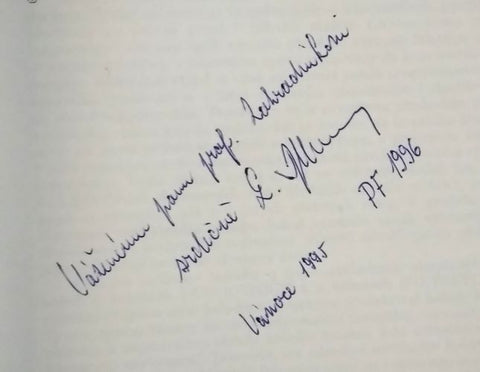 Váženému panu prof. Zahradníkovi
srdečně
Vánoce 1995
PF 1996